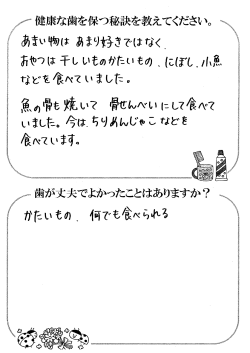 健康な歯を保つ秘訣を教えてください。
あまい物は あまり好きではなく、
おやつは干しいものかたいもの、にぼし、小魚
などを食べていました。
魚の骨も焼いて 骨せんべいにして食べて
いました。今は、ちりめんじゃこなどを
食べています。
歯が丈夫でよかったことはありますか？
かたいもの、何でも食べられる